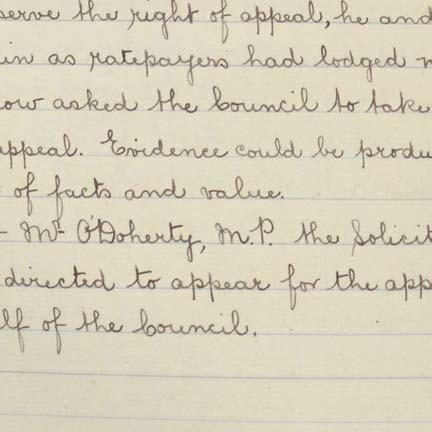 serve the right of appeal, he and
in as ratepayers had lodged
ow asked the Council to take
appeal. Evidence could be produ
of facts and value.
- Mr O'Doherty, M.P. the Solicit
directed to appear for the app
lf of the Council.